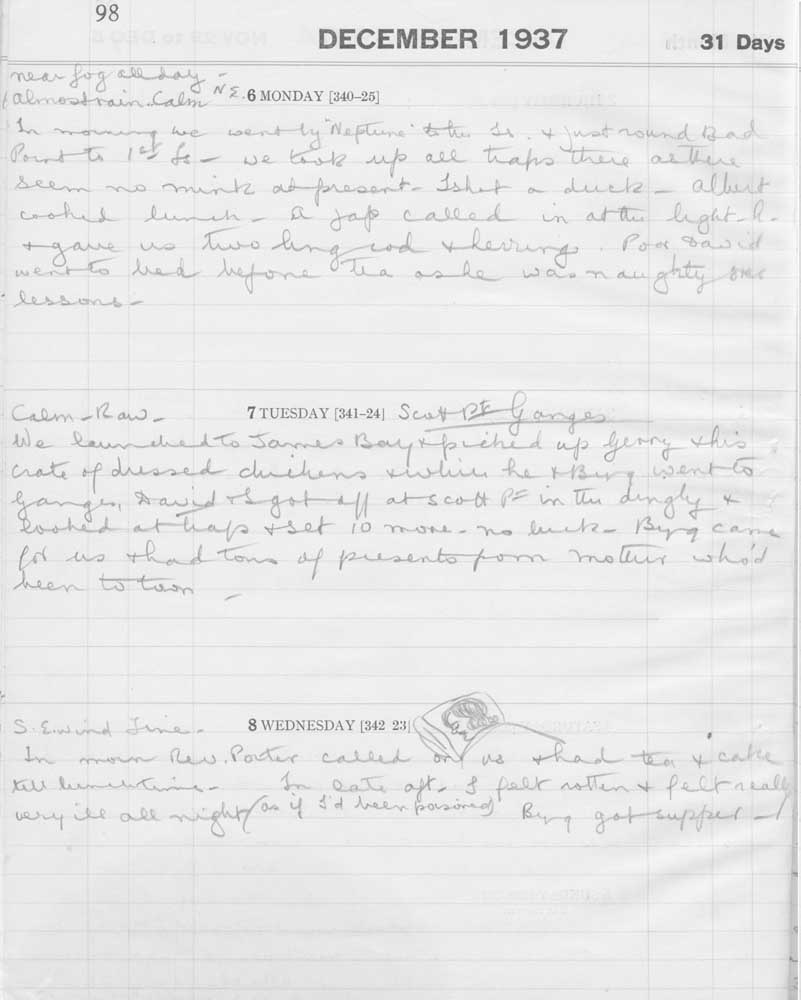 98
DECEMBER 1937 31 Days
near fog all day -
almost rain. Calm N E. 6 MONDAY [340–25]
In morning we went by "Neptune" to the Is. & just round Bad
Point to 1st Is - we took up all traps there as there
seem no mink at present - I shot a duck - Albert
cooked lunch - a Jap called in at the light-h-
& gave us two ling cod & herrings. Poor David
went to bed before tea as he was naughty over
lessons -
Calm - Raw - 7 TUESDAY [341–24] Scott Pt Ganges
We launched to James Bay & picked up Gerry & his
crate of dressed chickens & while he & Byrq went to
Ganges, David & I got off at Scott Pt in the dinghy &
looked at traps & set 10 more - no luck - Byrq came
for us & had tons of presents from mother who'd
been to town -
S. E. wind Fine - 8 WEDNESDAY [342 23]
In morn Rev. Porter called on us & had tea & cake
till lunchtime - In late aft. I felt rotten & felt really
very ill all night (as if I'd been poisoned) Byrq got supper -